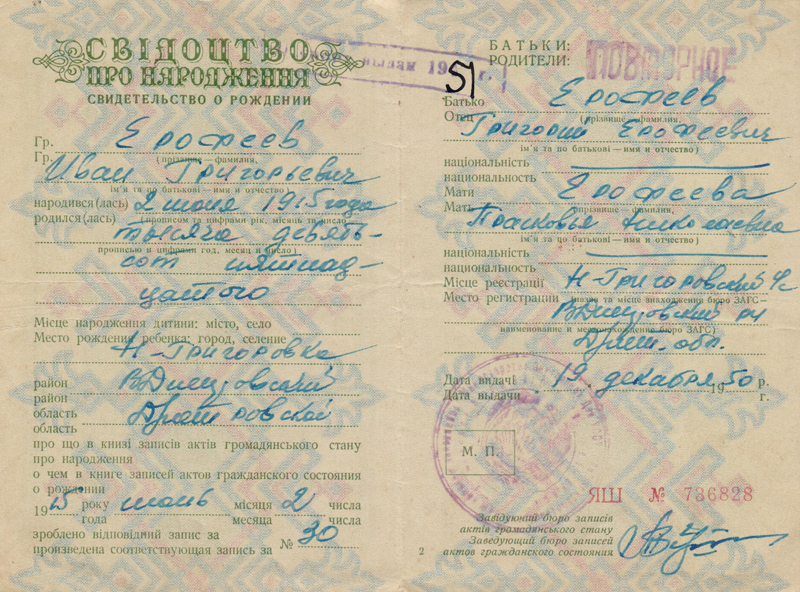 СВІДОЦТВО
ПРО НАРОДЖЕННЯ
СВИДЕТЕЛЬСТВО О РОЖДЕНИИ
Гр. Ерофеев
Гр. (прізвище – фамилия,
Иван Григорьевич
ім'я та по батькові – имя и отчество)
народився(лась) 2 июня 1915 года
родился(лась) (прописом та цифрами рік, місяць та число)
тысяча девять-
прописью и цифрами год, месяц и число)
сот пятнад-
цатого
Місце народження дитини: місто, село
Место рождения ребенка: город, селение
Н-Григоровка
район В Днепровский
район
область Днепр ровской
область
про що в книзі записів актів громадянського стану
про народження
о чем в книге записей актов гражданского состояния
о рождении
1915 року июнь місяця 2 числа
года месяца числа
зроблено відповідний запис за № 30
произведена соответствующая запись за
выдан 19 г.
51
БАТЬКИ:
РОДИТЕЛИ:
ПОВТОРНОЕ
Батько Ерофеев
Отец (прізвище – фамилия,
Григорий Ерофеевич
ім'я та по батькові – имя и отчество)
національність
национальность
Мати Ерофеева
Мать (прізвище – фамилия,
Прасковья Николаевна
ім'я та по батькові – имя и отчество)
національність
национальность
Місце реєстрації Н-Григоровский с/с
Место регистрации (назва та місце знаходження бюро ЗАГС–
В Днепровский рн
наименование и местонахождение бюро ЗАГС)
обл.
Дата видачі 19 декабря 1950 р.
Дата выдачи г.
М. П.
ЯШ № 736828
Завідуючий бюро записів
актів громадянського стану
Заведующий бюро записей
актов гражданского состояния
2